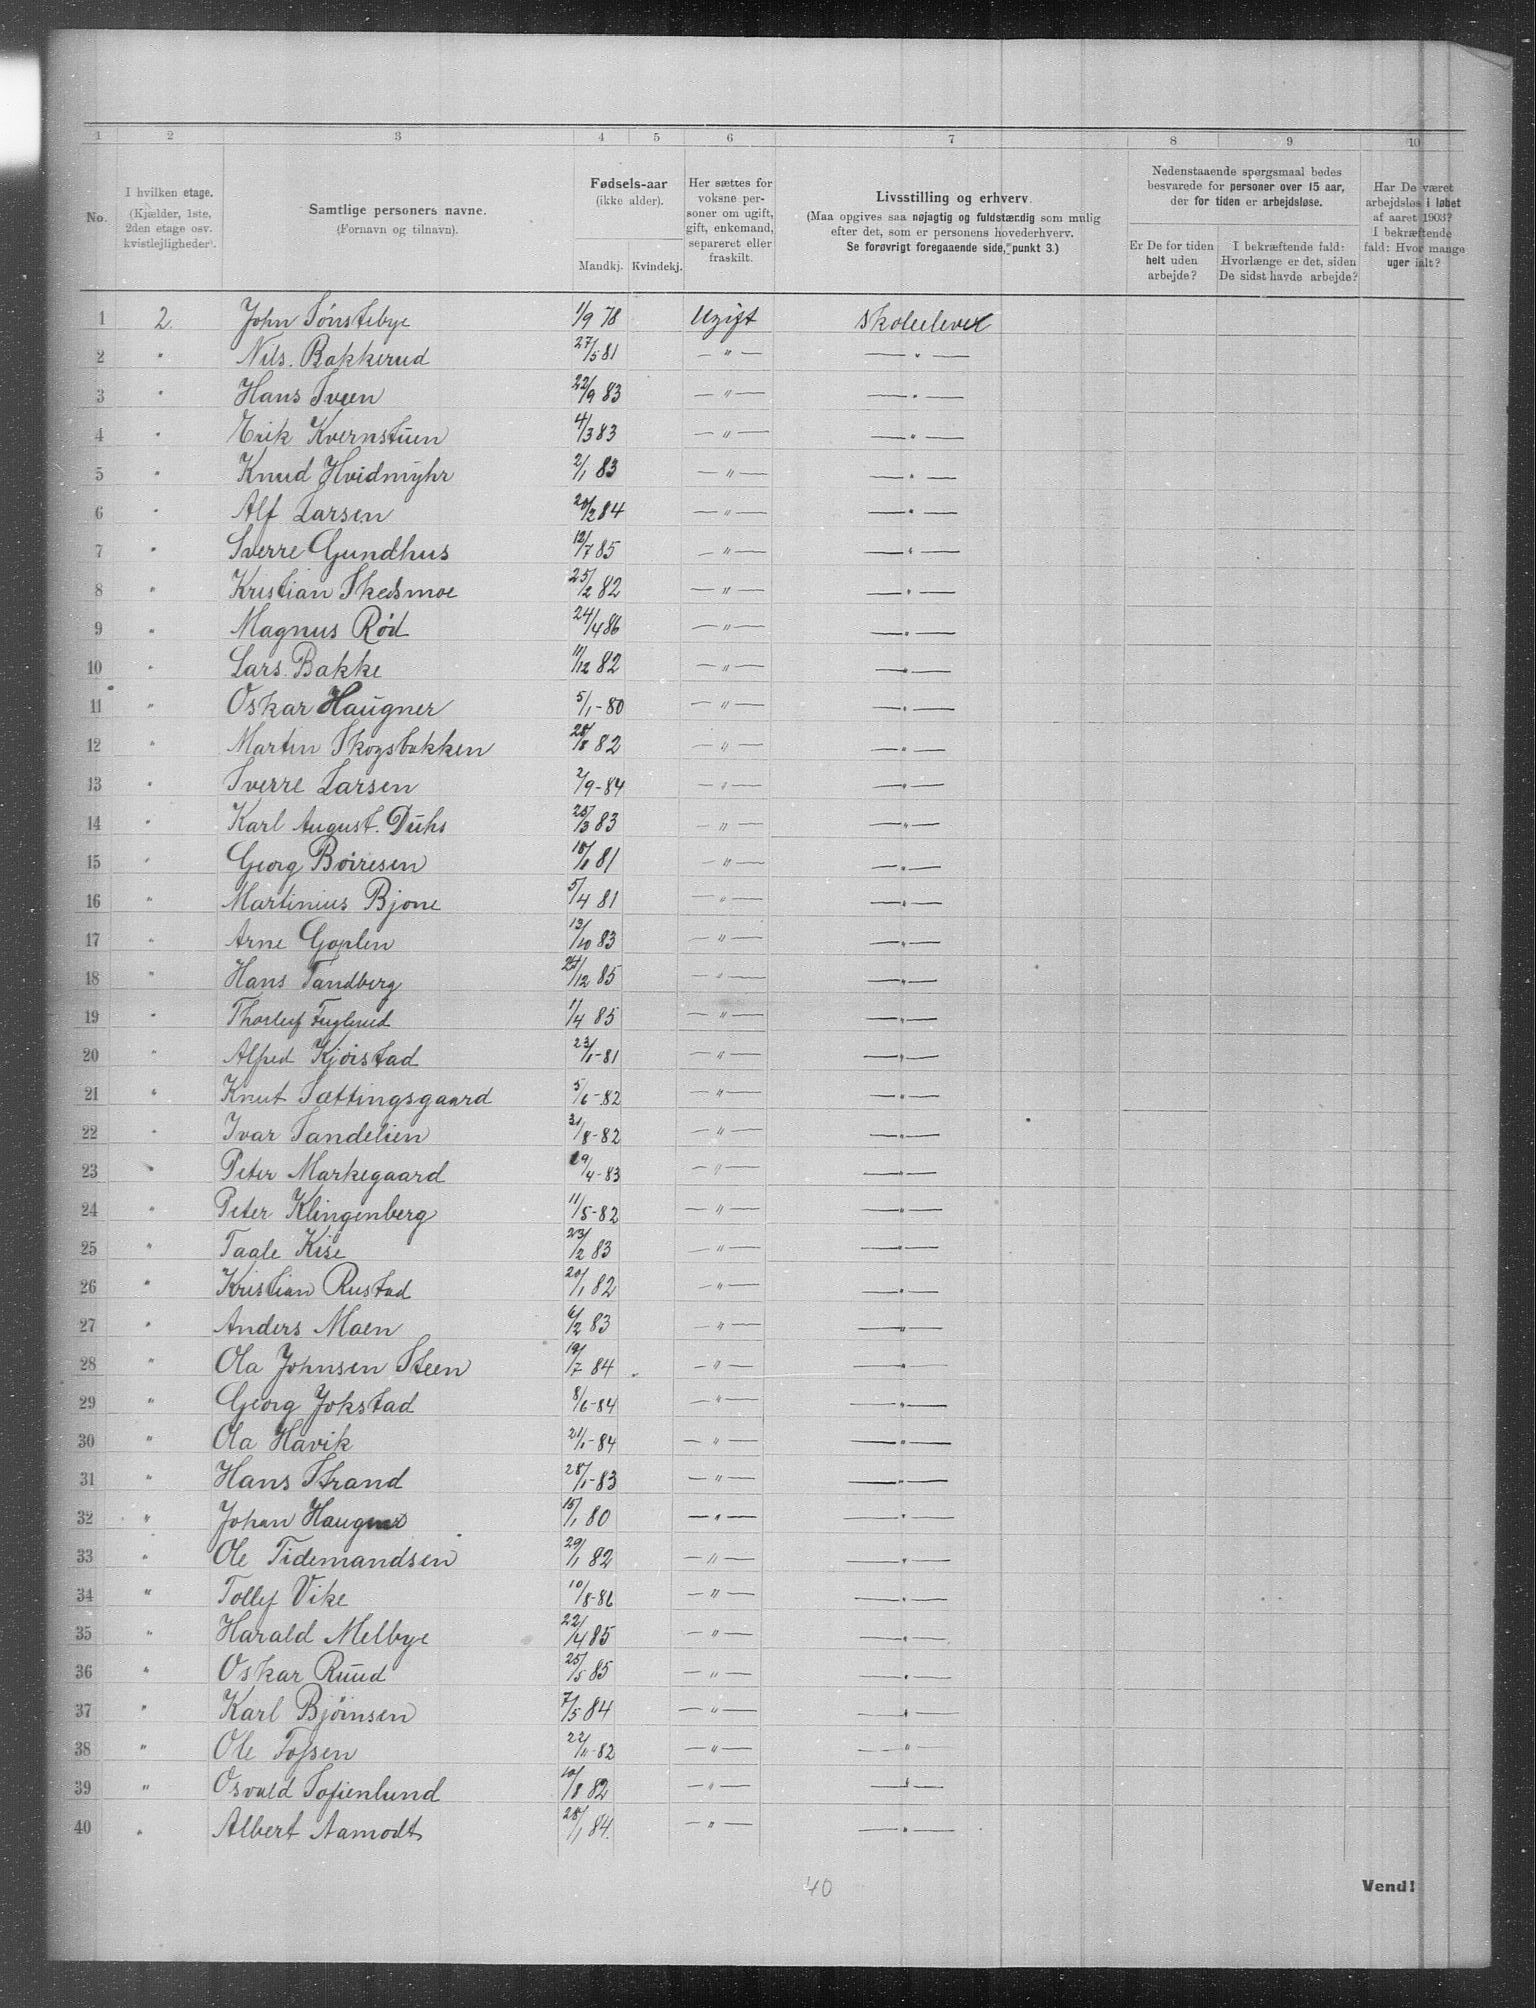 1 2 3 4 5 6 7 8 9 10
No.
I hvilken etage.
(Kjælder, 1ste,
2den etage osv.
kvistlejligheder).
Samtlige personers navne.
(Fornavn og tilnavn).
Fødsels-aar
(ikke alder).
Mandkj. Kvindekj.
Her sættes for
voksne per-
soner om ugift,
gift, enkemand,
separeret eller
fraskilt.
Livsstilling og erhverv.
(Maa opgives saa nøjagtig og fuldstærdig som mulig
efter det, som er personens hovederhverv.
Se forøvrigt foregaaende side, punkt 3.)
Nedenstaaende spørgsmaal bedes
besvarede for personer over 15 aar,
der for tiden er arbejdsløse.
Er De for tiden
helt uden
arbejde?
I bekræftende fald:
Hvorlænge er det, siden
De sidst havde arbejde?
Har De været
arbejdsløs i løbet
af aaret 1903?
I bekræftende
fald: Hvor mange
uger ialt?
1 2 John Sønstebye 1/9 78 Ugift Skoleelever
2 " Nils. Bakkerud 27/5 81 —"— —"—
3 " Hans Sveen 22/9 83 —"— —"—
4 " Erik Kvernstuen 4/3 83 —"— —"—
5 " Knud Hvidmyhr 2/1 83 —"— —"—
6 " Alf Larsen 20/2 84 —"— —"—
7 " Sverre Gundhus 12/7 85 —"— —"—
8 " Kristian Skedsmoe 25/2 82 —"— —"—
9 " Magnus Rød 24/4 86 —"— —"—
10 " Lars. Bakke 11/12 82 —"— —"—
11 " Oskar Haugner 5/1-80 —"— —"—
12 " Martin Skogsbakken 28/8 82 —"— —"—
13 " Sverre Larsen 2/9-84 —"— —"—
14 " Karl August. Duhs 25/3 83 —"— —"—
15 " Georg Børresen 81 —"— —"—
16 " Martinius Bjone 5/4 81 —"— —"—
17 " Arne Goplen 13/10 83 —"— —"—
18 " Hans Tandberg 24/12 85 —"— —"—
19 " Thorleif Fuglerud 1/4 85 —"— —"—
20 " Alfred Kjøistad 23/1-81 —"— —"—
21 " Knut Sættingsgaard 5/6-82 —"— —"—
22 " Ivar Sandelien 31/8-82 —"— —"—
23 " Peter Markegaard 19/4-83 —"— —"—
24 " Peter Klingenberg 11/5-82 —"— —"—
25 " Taale Kise 23/2 83 —"— —"—
26 " Kristian Rustad 20/1 82 —"— —"—
27 " Anders Moen 6/2 83 —"— —"—
28 " Ola Johnsen Steen 19/7 84 —"— —"—
29 " Georg Jokstad 8/6-84 —"— —"—
30 " Ola Havik 21/1-84 —"— —"—
31 " Hans Strand 28/1-83 —"— —"—
32 " Johan Haugner 15/1 80 —"— —"—
33 " Ole Tidemandsen 29/1 82 —"— —"—
34 " Tollef Vike 10/8-86 —"— —"—
35 " Harald Melbye 22/4 85 —"— —"—
36 " Oskar Ruud 25/5 85 —"— —"—
37 " Karl Bjørnsen 7/5 84 —"— —"—
38 " Ole Tofsen 22/11-82 —"— —"—
39 " Osvald Sofienlund 10/8 82 —"— —"—
40 " Albert Aamodt 28/1 84. —"— —"—
40
Vend!